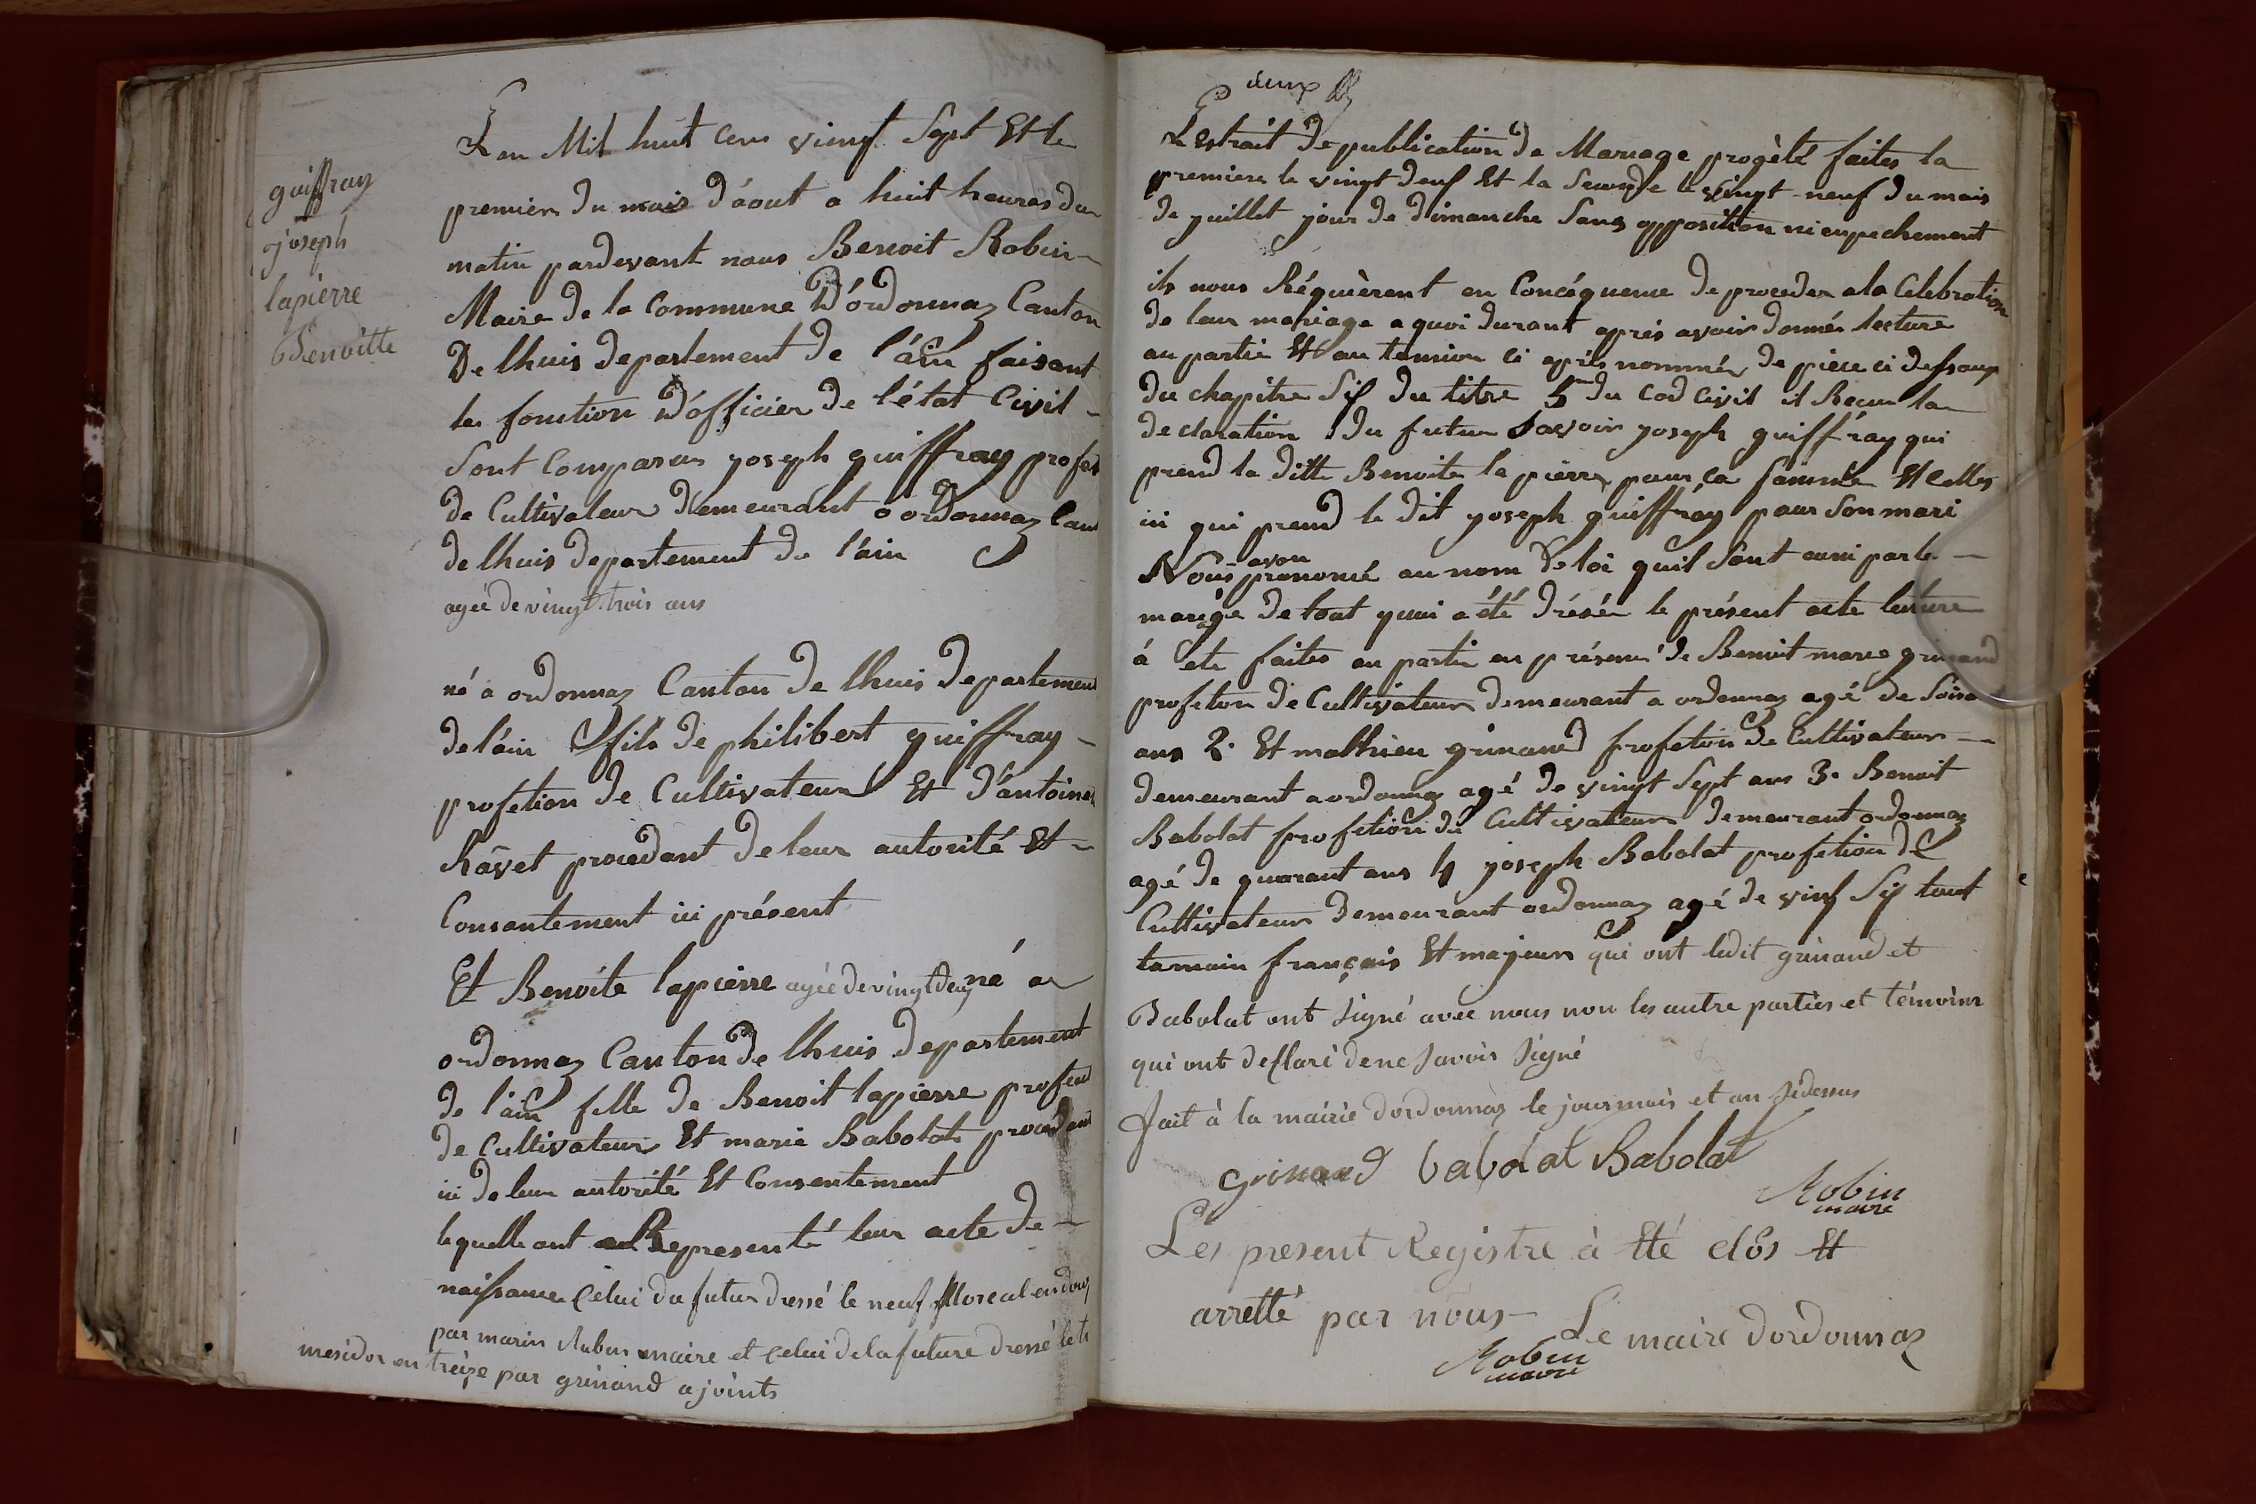 guiffray
joseph
lapierre
Benoitte
L'an Mil huit cens vingt Sept Et le
premier du mois d'áout a huit heures du
matin pardevant nous Benoit Robin
Maire de la Commune D'ordonnaz Canton
De lhuis departement de l'áin faisant
les fonction D'officier de l'état Civil
Sont Comparus joseph guiffray profes
de Cultivateur démeurant a ordonnaz Can
de lhuis departement de l'áin
agée de vingt trois ans
né a ordonnaz Canton de lhuis departement
de l'áin fils de philibert guiffray
profetion de Cultivateur Et d'antoine
Ravet procedant de leur autorité Et
Consantement ici présent
Et Benoite lapierre agée de vingt deux né a
ordonnaz Canton de lhuis departement
de l'áin fille de Benoit lapierre
de Cultivateur Et marie Babolat procedant
ici de leur autorité Et Consentement
lequelle ont Representé leur acte de
naissance Celui du futur dressé le neuf floreal en douz
par marin Rubin maire et celui de la future dressé le
mesidor en treize par grinand ajoints
deux
L'Estrait de publication de Mariage progèté faites la
premiere le vingt deuf Et la Seconde le vingt neuf du mois
de juillet jour de dimanche Sans opposition ni enpechement
ils nous Réquièrent en Concéquence de proceder a la Celebration
de leur mariage a quoi durant aprés avoir donnée lecture
au partie Et au temion ci aprés nommés de piece ci dessous
du chapitre Sis du titre 5 du cod Civil il Recu la
declaration du futur Savoir joseph guiffray qui
prend la ditte Benoite la pierre pour ca famme Et Celles
ici qui prend le dit joseph guiffráy pour Son mari
Nous avon prenoncé au nom de loi quil Sont auni par le
marége de tout quoi a été drésée le présent acte lecture
à ete faites au partie en présence de Benoit marie grinand
profetion de Cultivateur demeurant a ordonnaz agé de Soisa
ans 2. Et mathieu grinand profetion de Cultivateur
demeurant a ordonnaz agé de vingt Sept ans 3. Benoit
Babolat profetion de Cultivateur demeurant ordonnaz
agé de quarant ans 4 joseph Babolat profetion de
Cultivateur demeurant ordonnaz agé de vint Sis tout
temoin français Et majeur qui ont ledit grinand et
Babolat ont signé avec nous non les autre parties et témoins
qui ont desclaré de ne savoir signé
fait à la mairie dordonnaz le jour mois et an sidessus
grinand babolat Babolat
Robin
maire
Les present Registre à Eté clos Et
arretté par nous Le maire dordonnaz
Robin
maire